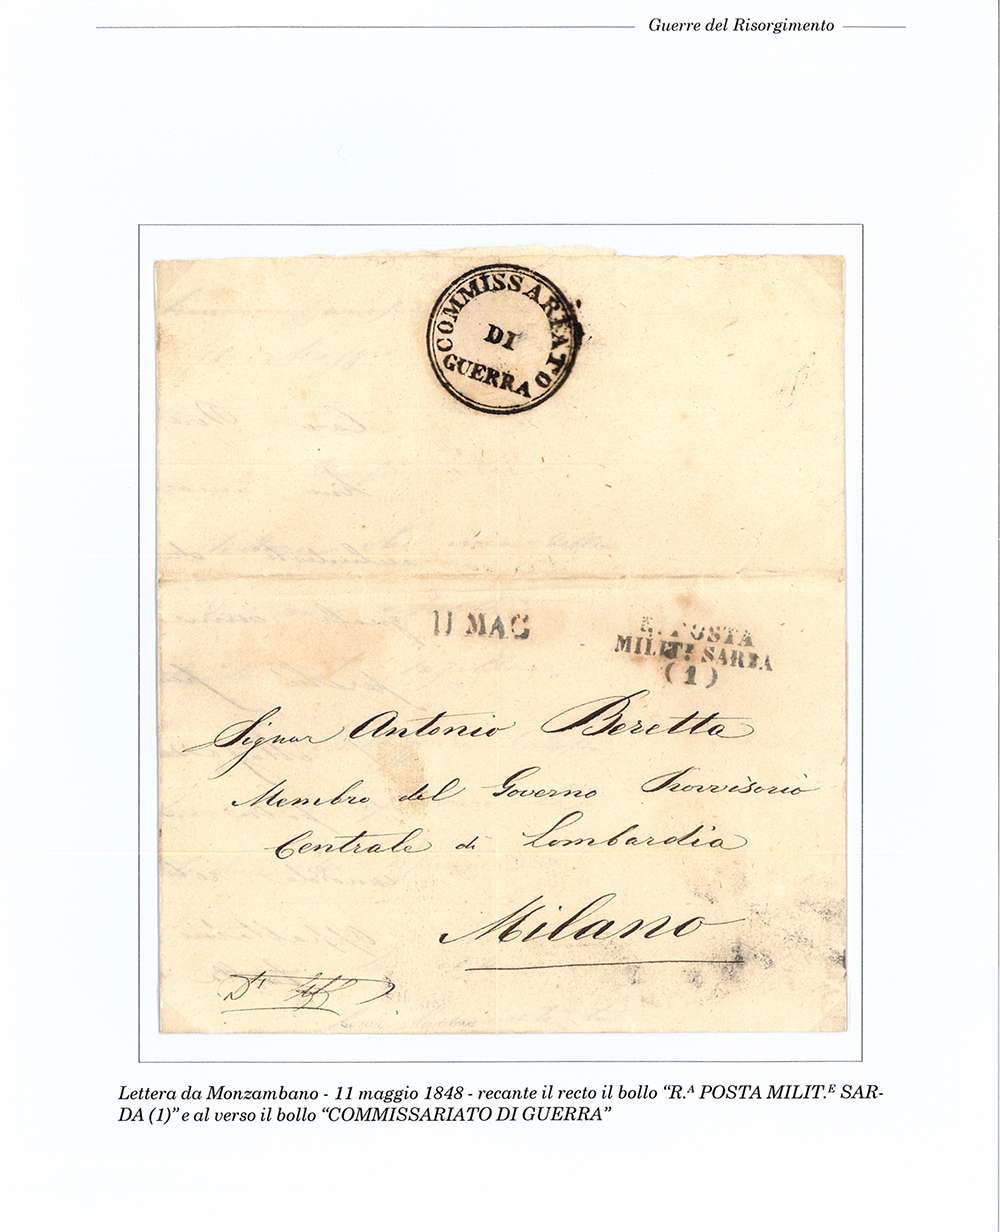 Guerre del Risorgimento
COMMISSARIATO
DI
GUERRA
11 MAG
R. POSTA
MILIT.E SARDA
(1)
Signor Antonio Beretta
Membro del Governo Provvisorio
Centrale di Lombardia
Milano
Lettera da Monzambano - 11 maggio 1848 - recante il recto il bollo “R.A POSTA MILIT.E SAR-
DA (1)” e al verso il bollo “COMMISSARIATO DI GUERRA”